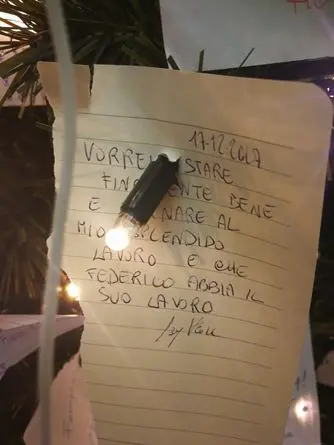 17.12.2017
VORREI STARE
FINALMENTE BENE
E TORNARE AL
MIO SPLENDIDO
LAVORO E CHE
FEDERICO ABBIA IL
SUO LAVORO